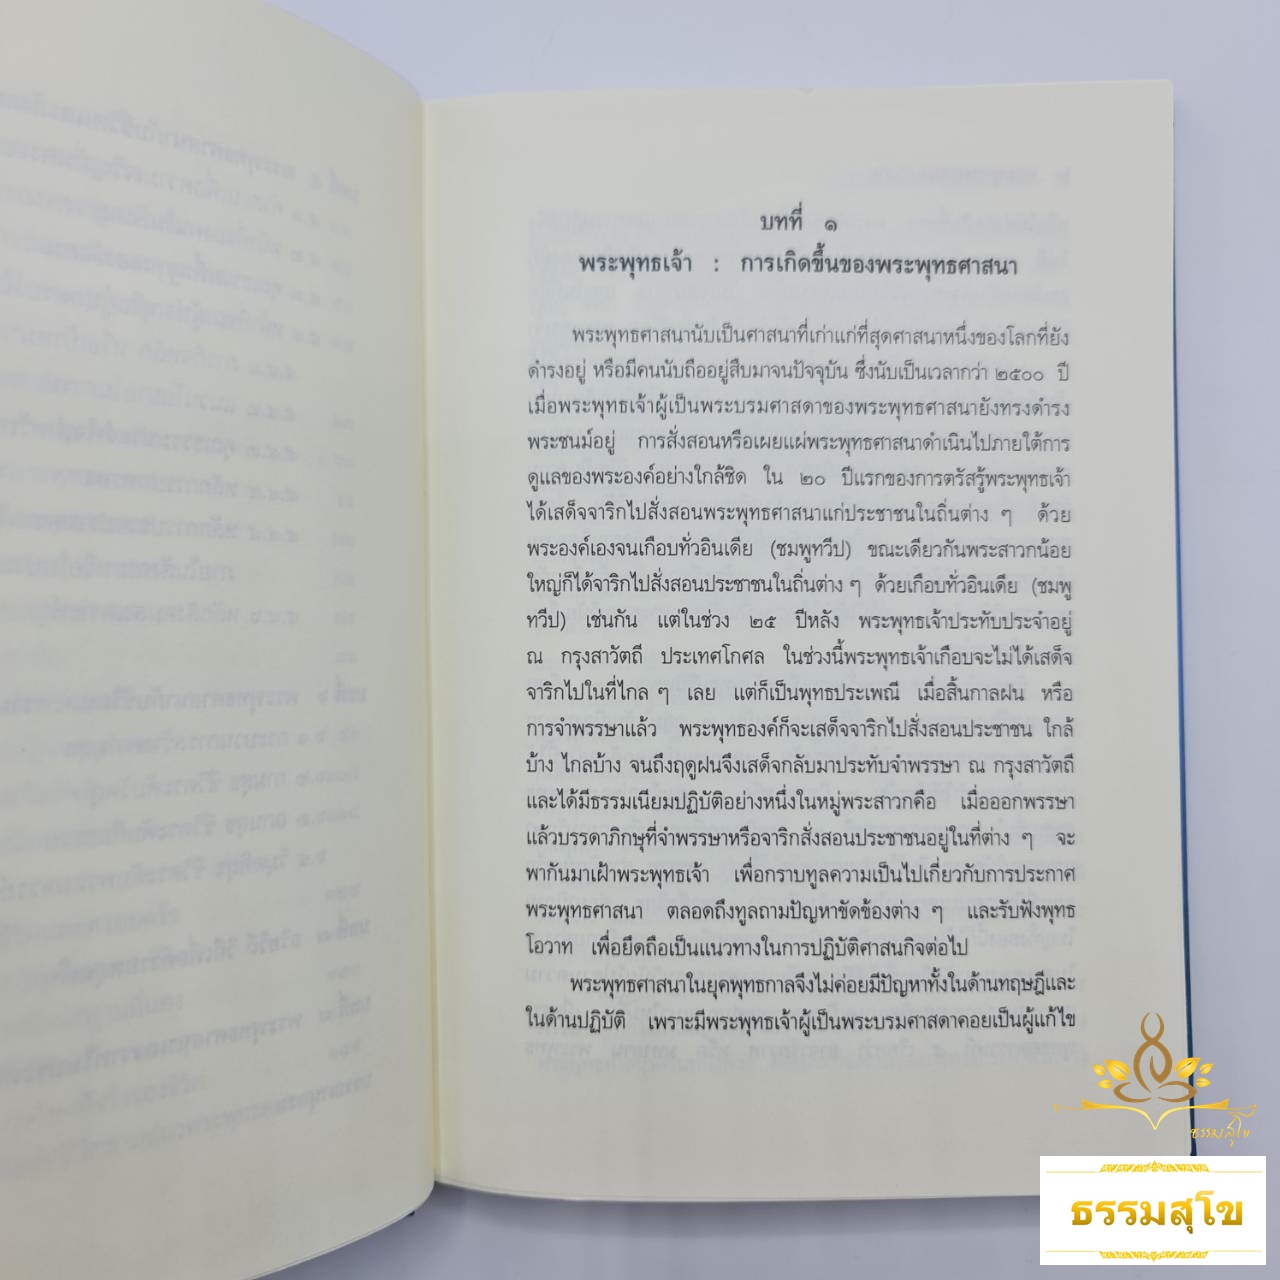 บทที่ ๑
พระพุทธเจ้า : การเกิดขึ้นของพระพุทธศาสนา
พระพุทธศาสนานับเป็นศาสนาที่เก่าแก่ที่สุดศาสนาหนึ่งของโลกที่ยัง
ดำรงอยู่ หรือมีคนนับถืออยู่สืบมาจนปัจจุบัน ซึ่งนับเป็นเวลากว่า ๒๕๐๐ ปี
เมื่อพระพุทธเจ้าผู้เป็นพระบรมศาสดาของพระพุทธศาสนายังทรงดำรง
พระชนม์อยู่ การสั่งสอนหรือเผยแผ่พระพุทธศาสนาดำเนินไปภายใต้การ
ดูแลของพระองค์อย่างใกล้ชิด ใน ๒๐ ปีแรกของการตรัสรู้พระพุทธเจ้า
ได้เสด็จจาริกไปสั่งสอนพระพุทธศาสนาแก่ประชาชนในถิ่นต่าง ๆ ด้วย
พระองค์เองจนเกือบทั่วอินเดีย (ชมพูทวีป) ขณะเดียวกันพระสาวกน้อย
ใหญ่ก็ได้จาริกไปสั่งสอนประชาชนในถิ่นต่าง ๆ ด้วยเกือบทั่วอินเดีย (ชมพู
ทวีป) เช่นกัน แต่ในช่วง ๒๕ ปีหลัง พระพุทธเจ้าประทับประจำอยู่
ณ กรุงสาวัตถี ประเทศโกศล ในช่วงนี้พระพุทธเจ้าเกือบจะไม่ได้เสด็จ
จาริกไปในที่ไกล ๆ เลย แต่ก็เป็นพุทธประเพณี เมื่อสิ้นกาลฝน หรือ
การจำพรรษาแล้ว พระพุทธองค์ก็จะเสด็จจาริกไปสั่งสอนประชาชน ใกล้
บ้าง ไกลบ้าง จนถึงฤดูฝนจึงเสด็จกลับมาประทับจำพรรษา ณ กรุงสาวัตถี
และได้มีธรรมเนียมปฏิบัติอย่างหนึ่งในหมู่พระสาวกคือ เมื่อออกพรรษา
แล้วบรรดาภิกษุที่จำพรรษาหรือจาริกสั่งสอนประชาชนอยู่ในที่ต่าง ๆ จะ
พากันมาเฝ้าพระพุทธเจ้า เพื่อกราบทูลความเป็นไปเกี่ยวกับการประกาศ
พระพุทธศาสนา ตลอดถึงทูลถามปัญหาขัดข้องต่าง ๆ และรับฟังพุทธ
โอวาท เพื่อยึดถือเป็นแนวทางในการปฏิบัติศาสนกิจต่อไป
พระพุทธศาสนาในยุคพุทธกาลจึงไม่ค่อยมีปัญหาทั้งในด้านทฤษฎีและ
ในด้านปฏิบัติ เพราะมีพระพุทธเจ้าผู้เป็นพระบรมศาสดาคอยเป็นผู้แก้ไข
ธรรมสุโข
ธรรมสุโข